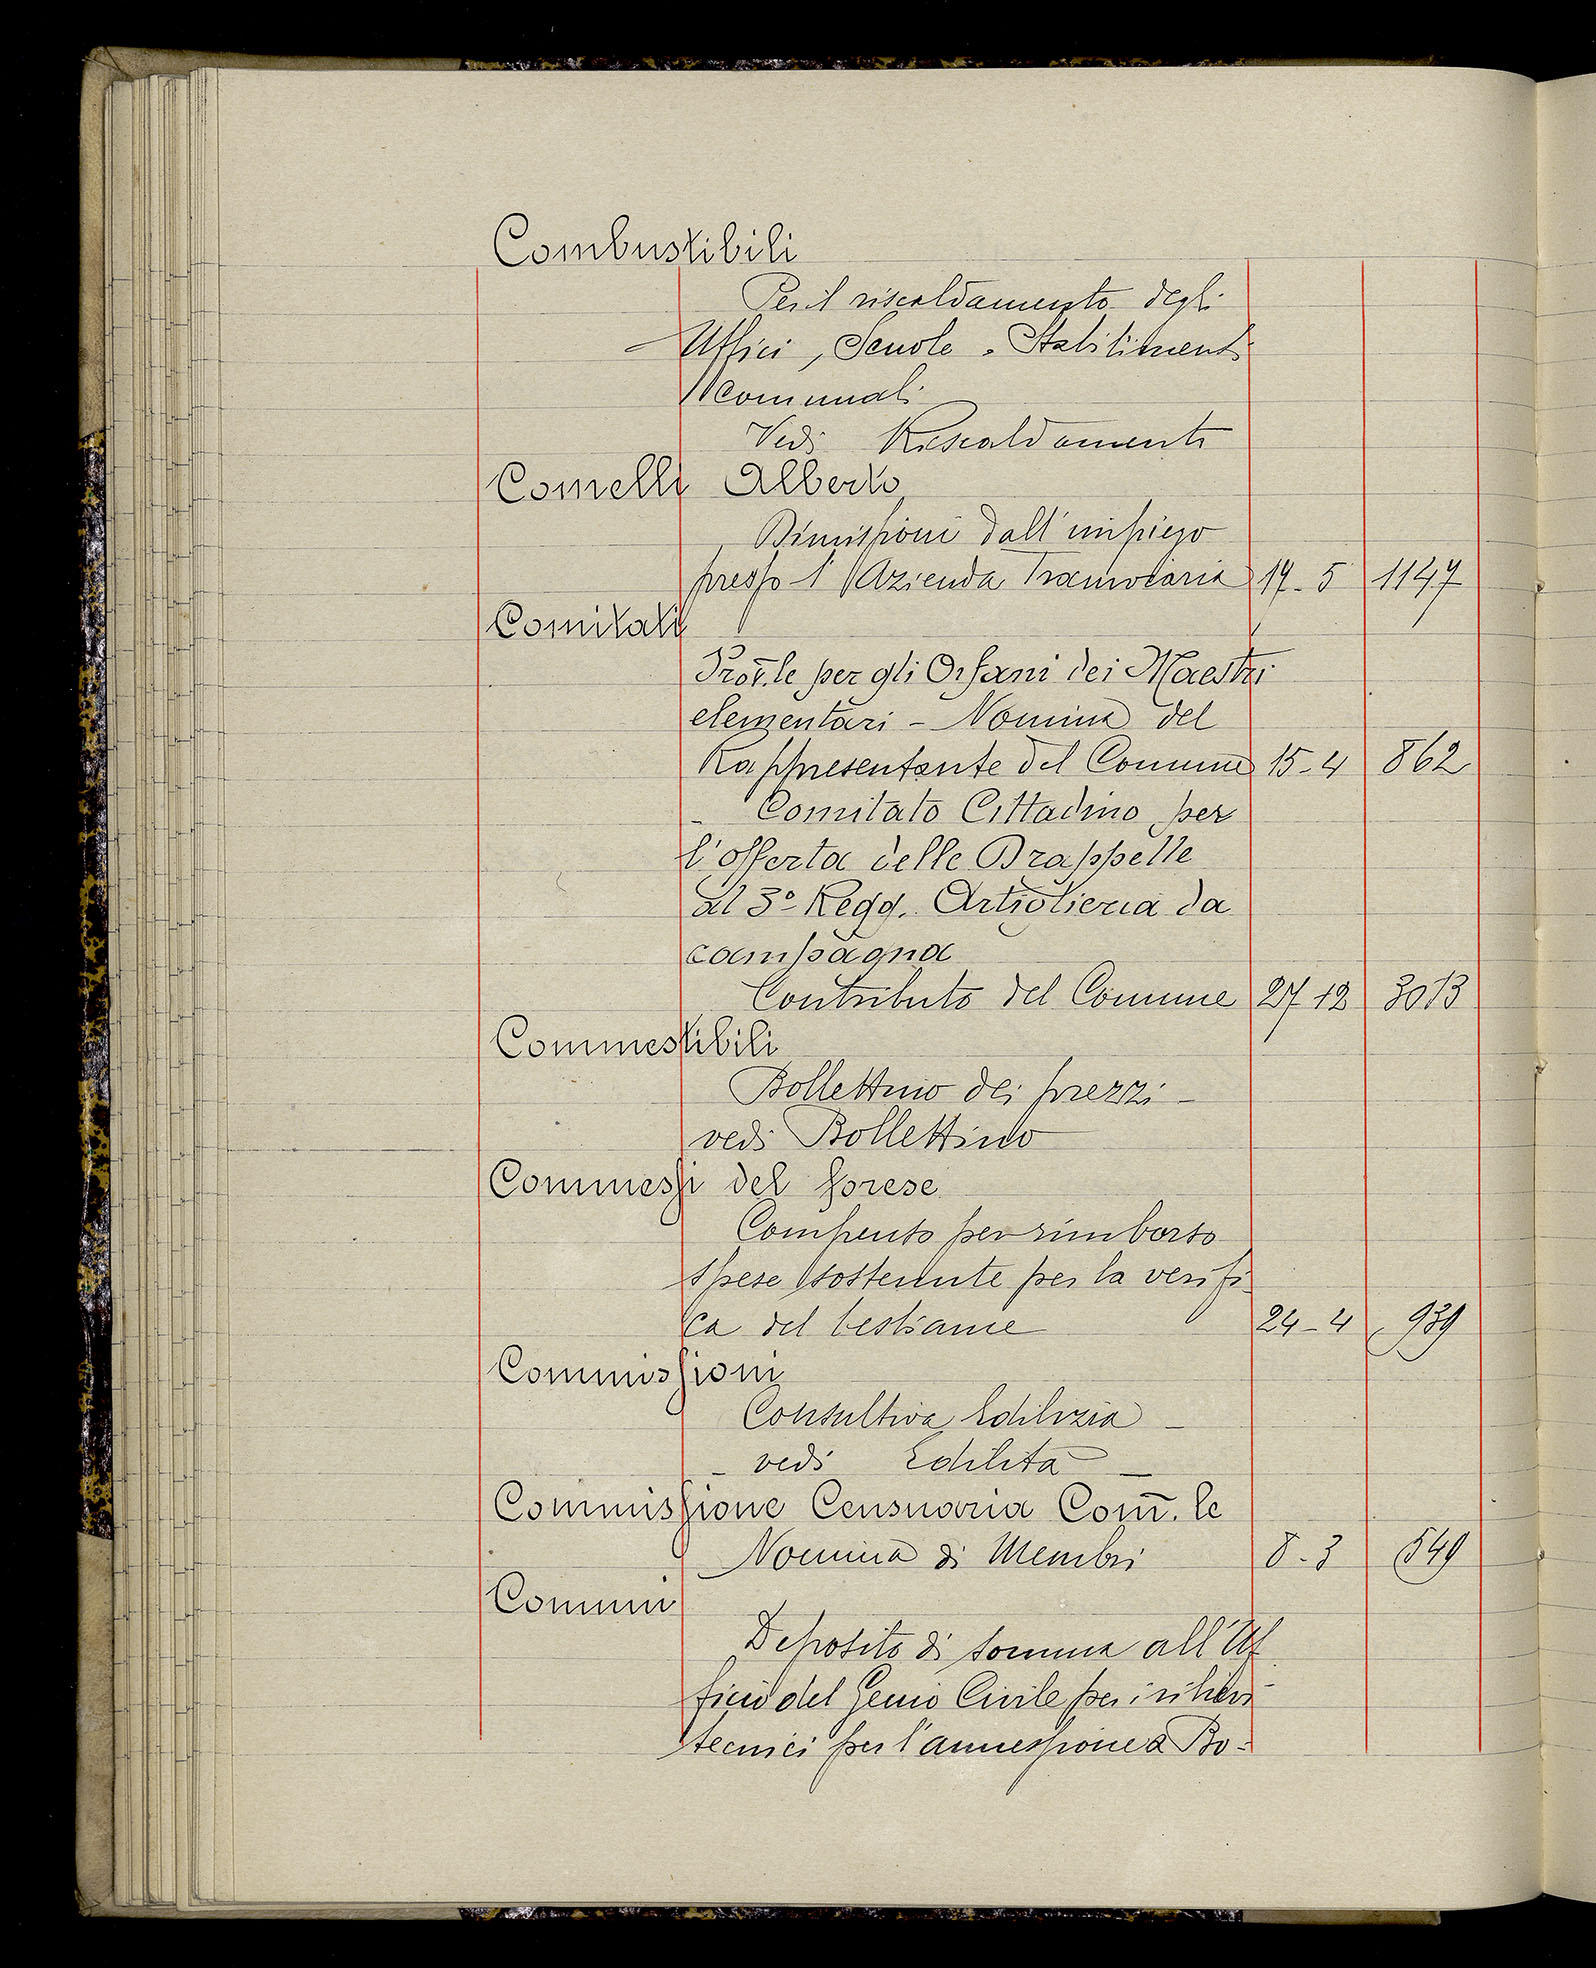 Combustibili
Per il riscaldamento degli
Uffici, Scuole - Stabilimenti
comunali
Vedi Riscaldamenti
Comelli Alberto
Dimissioni dall'impiego
presso l'Azienda Tramviaria 17-5 1147
Comitati
Prov.le per gli Orfani dei Maestri
elementari - Nomina del
Rappresentante del Comune 15-4 862
- Comitato Cittadino per
l'offerta delle Drappelle
al 3º Regg. Artiglieria da
campagna
Contributo del Comune 27 12 3013
Commestibili
Bollettino dei prezzi -
vedi Bollettino
Commessi del forese
Compenso per rimborso
spese sostenute per la verifi-
ca del bestiame 24-4 939
Commissioni
Consultiva Edilizia -
- vedi Edilità -
Commissione Censuaria Com.le
Nomina di Membri 8-3 549
Comuni
Deposito di somma all'Uf
ficio del Genio Civile per i rilievi
tecnici per l'annessione a Bo-